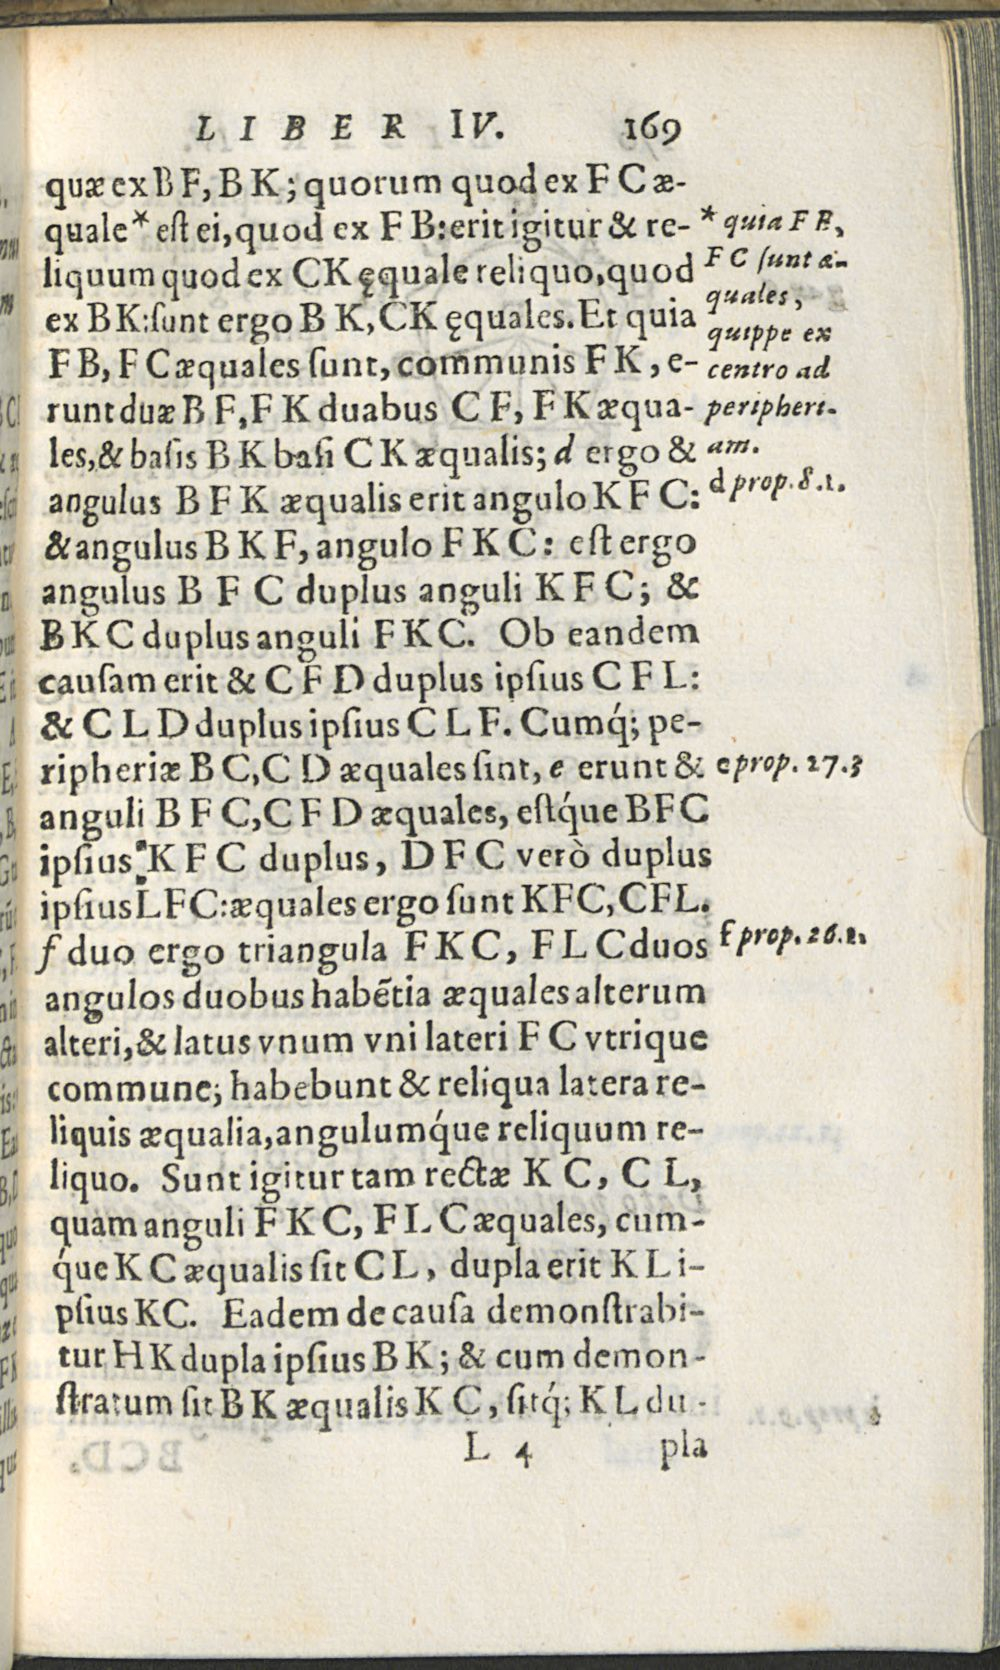 LIBER IV. 169
quæ ex B F, B K; quorum quod ex F C æ-
quale* est ei, quod ex F B: erit igitur & re-
liquum quod ex CK ęquale reliquo, quod
ex B K: sunt ergo B K, CK ęquales. Et quia
F B, F C æquales sunt, communis F K, e-
runt duæ B F, F K duabus C F, F K æqua-
les, & basis B K basi C K æqualis; d ergo &
angulus B F K æqualis erit angulo K F C:
& angulus B K F, angulo F K C: est ergo
angulus B F C duplus anguli K F C; &
B K C duplus anguli F K C. Ob eandem
causam erit & C F D duplus ipsius C F L:
& C L D duplus ipsius C L F. Cumq́; pe-
ripheriæ B C, C D æquales sint, e erunt &
anguli B F C, C F D æquales, estq́ue BFC
ipsius K F C duplus, D F C verò duplus
ipsius LFC: æquales ergo sunt KFC, CFL.
f duo ergo triangula F K C, F L C duos
angulos duobus habẽtia æquales alterum
alteri, & latus vnum vni lateri F C vtrique
commune; habebunt & reliqua latera re-
liquis æqualia, angulumq́ue reliquum re-
liquo. Sunt igitur tam rectæ K C, C L,
quam anguli F K C, F L C æquales, cum-
q́ue K C æqualis sit C L, dupla erit K L i-
psius KC. Eadem de causa demonstrabi-
tur H K dupla ipsius B K; & cum demon-
stratum sit B K æqualis K C, sitq́; K L du-
L 4 pla
* quia F B,
F C sunt æ-
quales,
quippe ex
centro ad
peripheri-
am.
d prop. 8.1.
e prop. 27.3
f prop. 26.1.